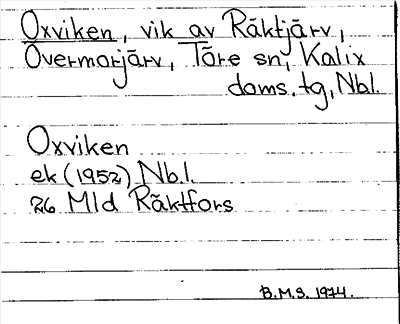 Oxviken, vik av Räktjärv,
Övermorjärv, Töre sn, Kalix
doms. tg, Nbl.
Oxviken
ek (1952) Nb.l.
26 Mld Räktfors
B.M.S. 1974.